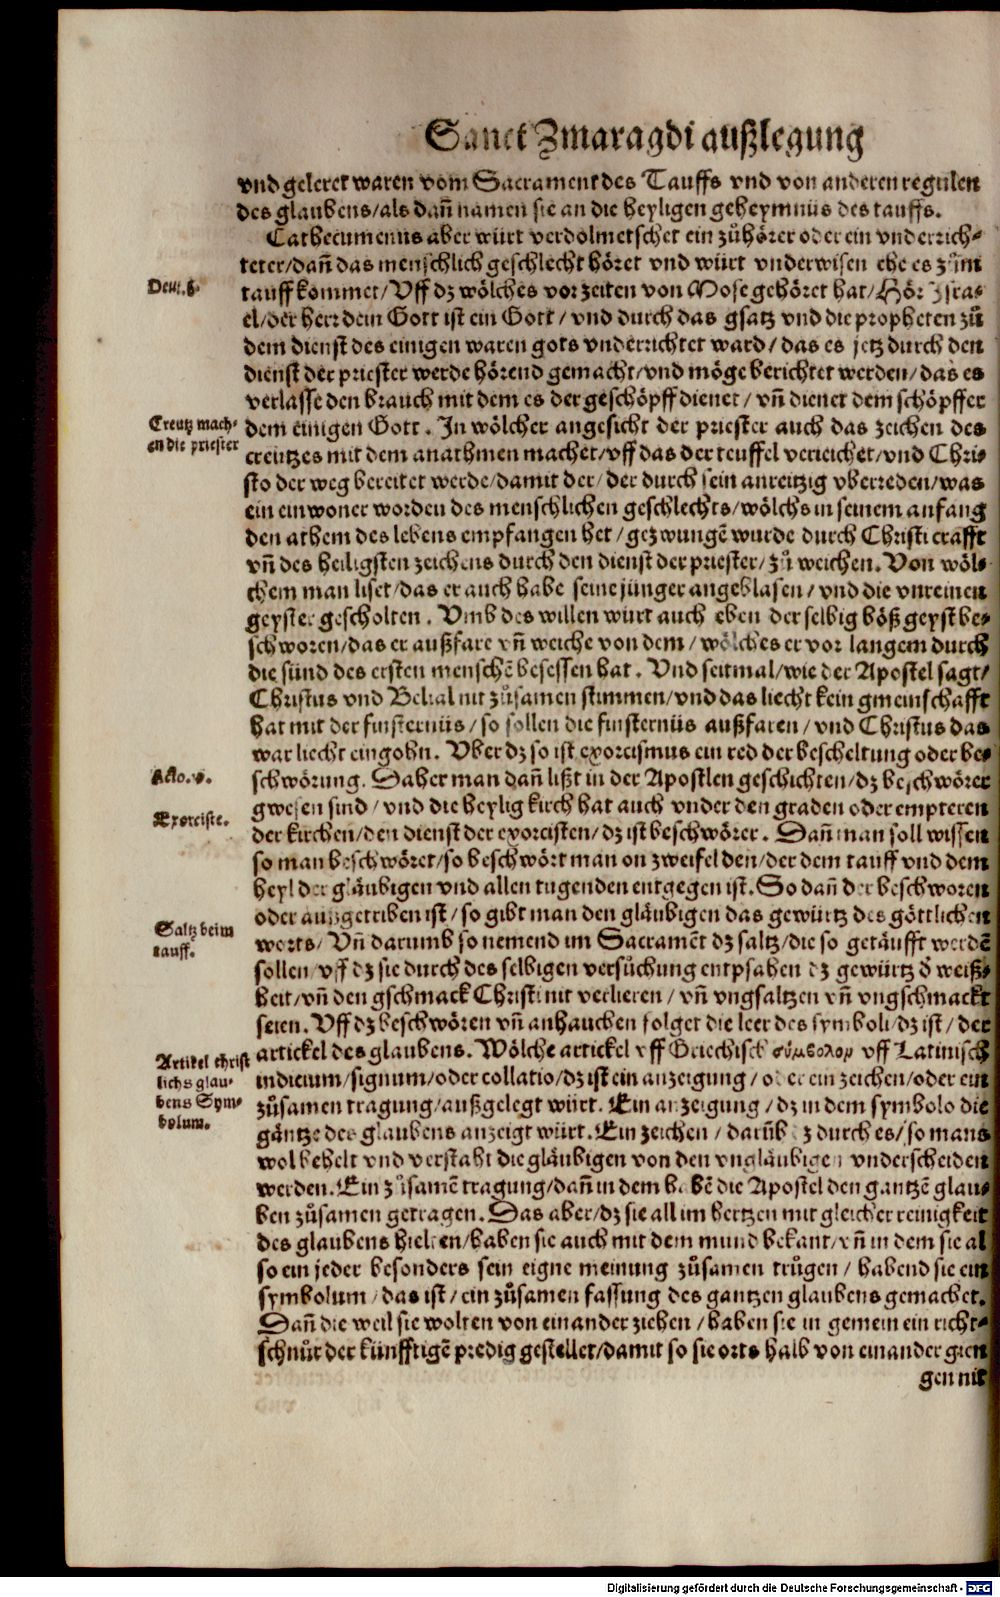 Sanct Zmaragdi außlegung
vnd geleret waren vom Sacrament des Tauffs vnd von anderen regulen
des glaubens/als dañ namen sie an die heyligen geheymnüs des tauffs.
Cathecumenus aber würt verdolmetschet ein zůhörer oder ein vnderrich-
teter/dañ das menschlich geschlecht höret vnd würt vnderwisen ehe es zům
Deut.6.
tauff kommet/Vff dz wölches vor zeiten von Mose gehöret hat/Hör Isra-
el/der herr dein Gott ist ein Gott/vnd durch das gsatz vnd die propheten zů
dem dienst des einigen waren gots vnderrichtet ward/das es jetz durch den
dienst der priester werde hörend gemacht/vnd möge berichtet werden/das es
verlasse den brauch mit dem es der geschöpff dienet/vñ dienet dem schöpffer
Creutz mach-
en die priester
dem einigen Gott. In wölcher angesicht der priester auch das zeichen des
creützes mit dem anathmen machet/vff das der teuffel verjeichet/vnd Chri-
sto der weg bereitet werde/damit der/der durch sein anreitzig vberreden/was
ein einwoner worden des menschlichen geschlechts/wölchs in seinem anfang
den athem des lebens empfangen het/gezwungē wurde durch Christi crafft
vñ des heiligsten zeichens durch den dienst der priester/zů weichen. Von wöl-
chem man liset/das er auch habe seine jünger angeblasen/vnd die vnreinen
geyster gescholten. Vmb des willen würt auch eben der selbig böß geyst be-
schworen/das er außfare vñ weiche von dem/wölches er vor langem durch
die sünd des ersten menschē besessen hat. Vnd seitmal/wie der Apostel sagt/
Christus vnd Belial nit zůsamen stimmen/vnd das liecht kein gmeinschafft
hat mit der finsternüs/so sollen die finsternüs außfaren/vnd Christus das
war liecht eingohn. Vber dz so ist exorcismus ein red der bescheltung oder be-
Acto.
schwörung. Daher man dañ lißt in der Apostlen geschichten/dz beschwörer
Exorciste.
gwesen sind/vnd die heylig kirch hat auch vnder den graden oder empteren
der kirchen/den dienst der exorcisten/dz ist beschwörer. Dañ man soll wissen
so man beschwöret/so beschwört man on zweifel den/der dem tauff vnd dem
heyl der gläubigen vnd allen tugenden entgegen ist. So dañ der beschworen
oder außgetriben ist/so gibt man den gläubigen das gewürtz des göttlichen
Saltz beim
tauff.
worts/Vñ darumb so nemend im Sacramēt dz saltz/die so getäufft werdē
sollen/vff dz sie durch des selbigen versůchung entpfahen dz gewürtz d̄ weiß-
heit/vñ den gschmack Christi nit verlieren/vñ vngsaltzen vñ vngschmackt
seien. Vff dz beschwören vñ anhauchen folget die leer des symboli/dz ist/der
Artikel christ
lichs glau-
bens Sym-
bolum.
artickel des glaubens. Wölche artickel vff Griechisch σύμβολον vff Latinisch
indicium/signum/oder collatio/dz ist ein anzeigung/oder ein zeichen/oder ein
zůsamen tragung/außgelegt würt. Ein anzeigung/dz in dem symbolo die
gäntze des glaubens anzeigt würt. Ein zeichen/darūb dz durch es/so mans
wol behelt vnd verstaht die gläubigen von den vngläubigen vnderscheiden
werden. Ein zůsamē tragung/dañ in dem habē die Apostel den gantzē glau-
ben zůsamen getragen. Das aber/dz sie all im hertzen mit gleicher reinigkeit
des glaubens hielten/haben sie auch mit dem mund bekant/vñ in dem sie al
so ein jeder besonders sein eigne meinung zůsamen trůgen/habend sie ein
symbolum/das ist/ein zůsamen fassung des gantzen glaubens gemachet.
Dañ die weil sie wolten von einander ziehen/haben sie in gemein ein richt-
schnůr der künfftigē predig gestellet/damit so sie orts halb von einander gien
gen nit
Digitalisierung gefördert durch die Deutsche Forschungsgemeinschaft - DFG